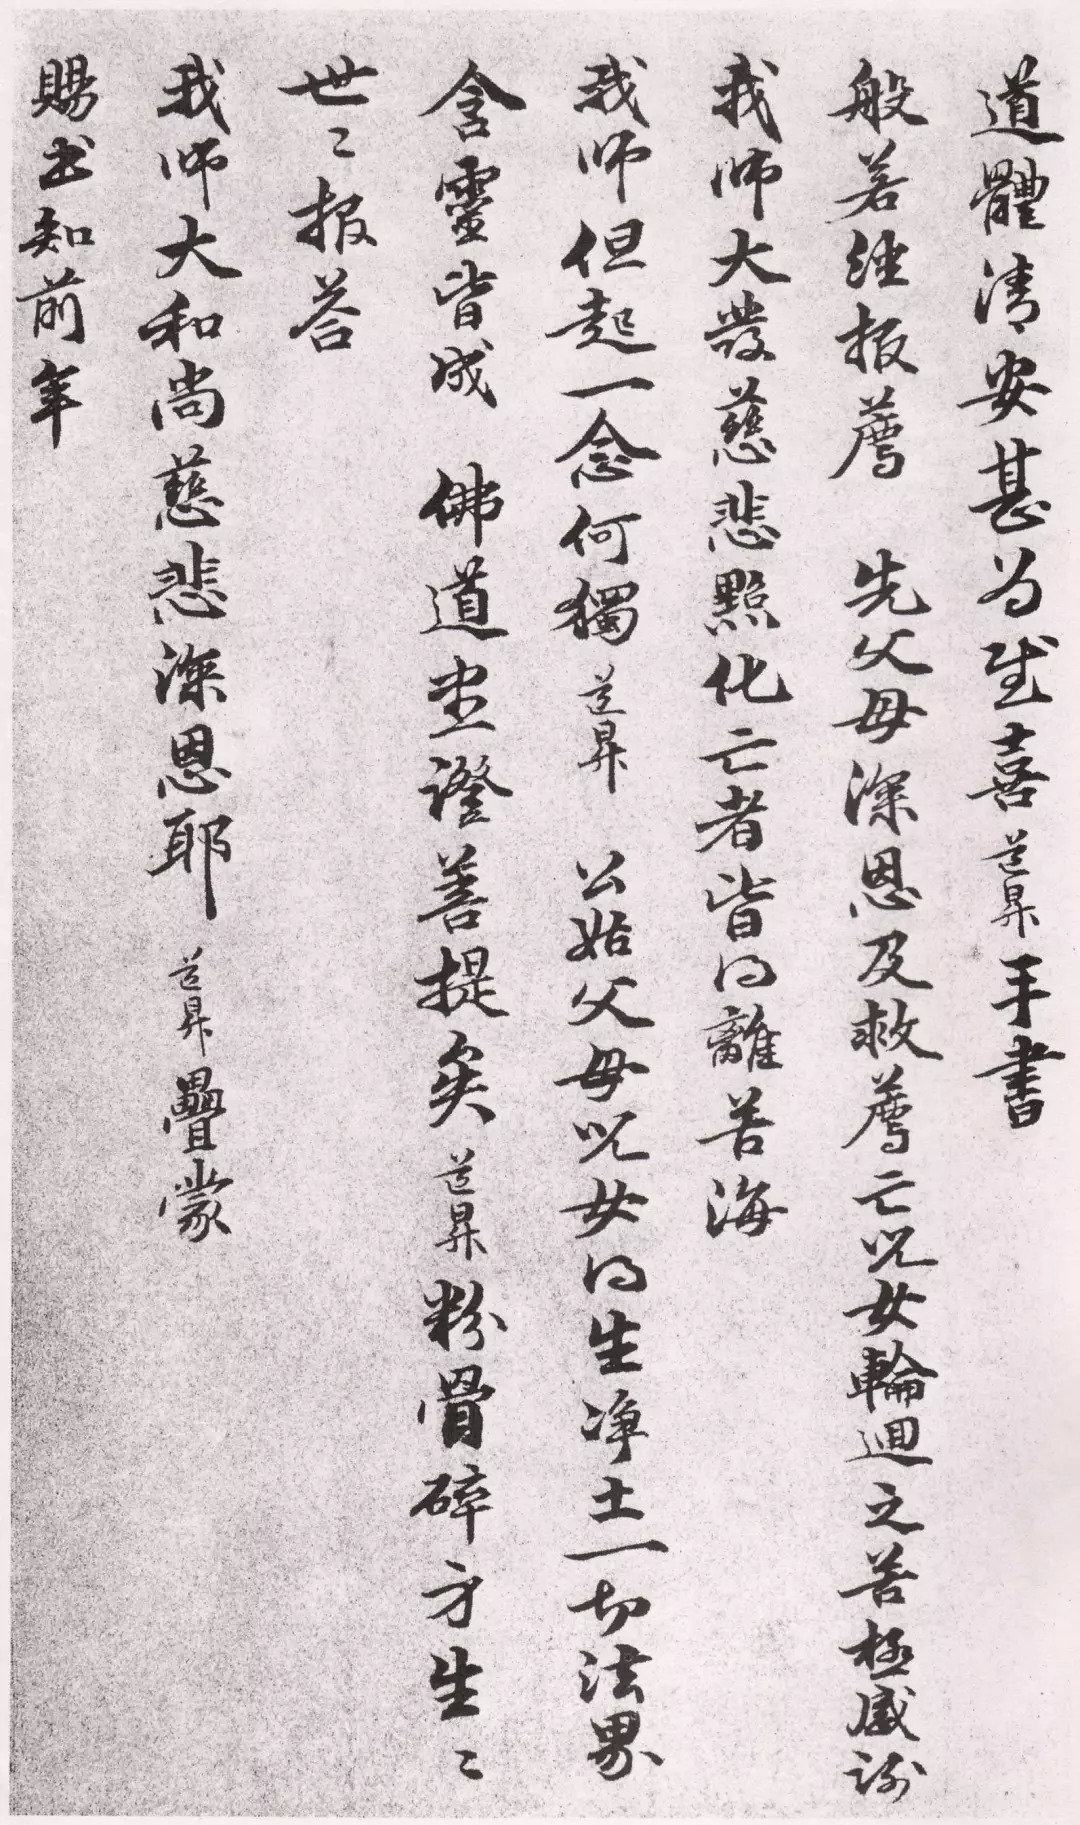 道體清安甚为感喜道昇手書
般若经报薦 先父母深恩及救薦亡兒女輪迴之苦極感谢
我师大發慈悲點化亡者皆得離苦海
我师但起一念何獨道昇 公姑父母兒女得生净土一切法界
含靈皆成 佛道坐證菩提矣道昇粉骨碎身生〻
世〻报答
我师大和尚慈悲深恩耶道昇疊蒙
賜书知前年